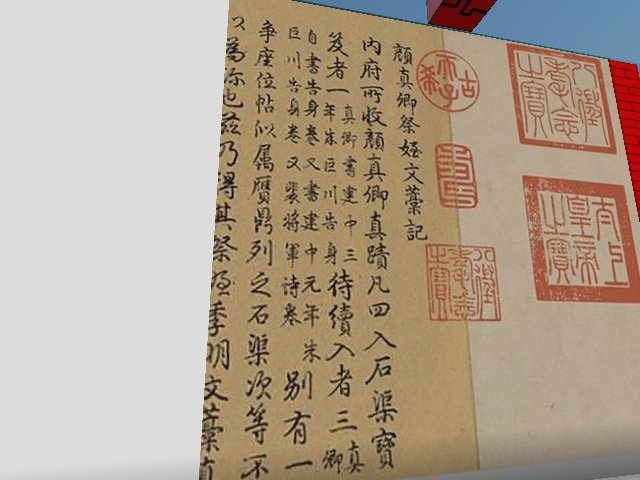 八徵耄念之寶
太上皇帝之寶
古希天子
壽
八徵耄念之寶
顏真卿祭姪文藁記
內府所收顏真卿真蹟凡四入石渠寶
笈者一真卿書建中三年朱巨川告身待續入者三真卿
自書告身卷又書建中元年朱巨川告身卷又裴將軍詩卷別有一
爭座位帖似屬贗鼎列之石渠次等不
以為珎也茲乃得其祭姪季明文藁真